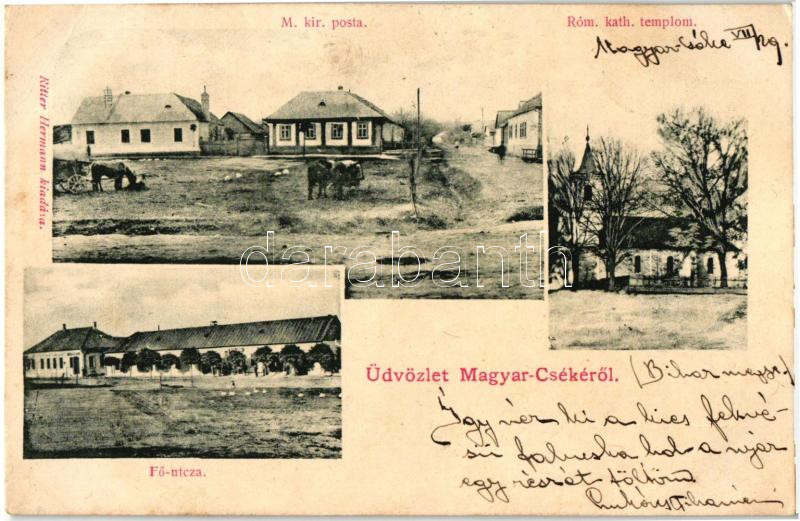 M. kir. posta.
Róm. kath. templom.
Magyar-Cséke VII/29.
Ritter Hermann kiadása.
darabanth
Üdvözlet Magyar-Csékéről.
(Bihar megye.)
Így néz ki a kies fekvé-
sű faluska hol a nyár
egy részét töltöm
Fő-utcza.